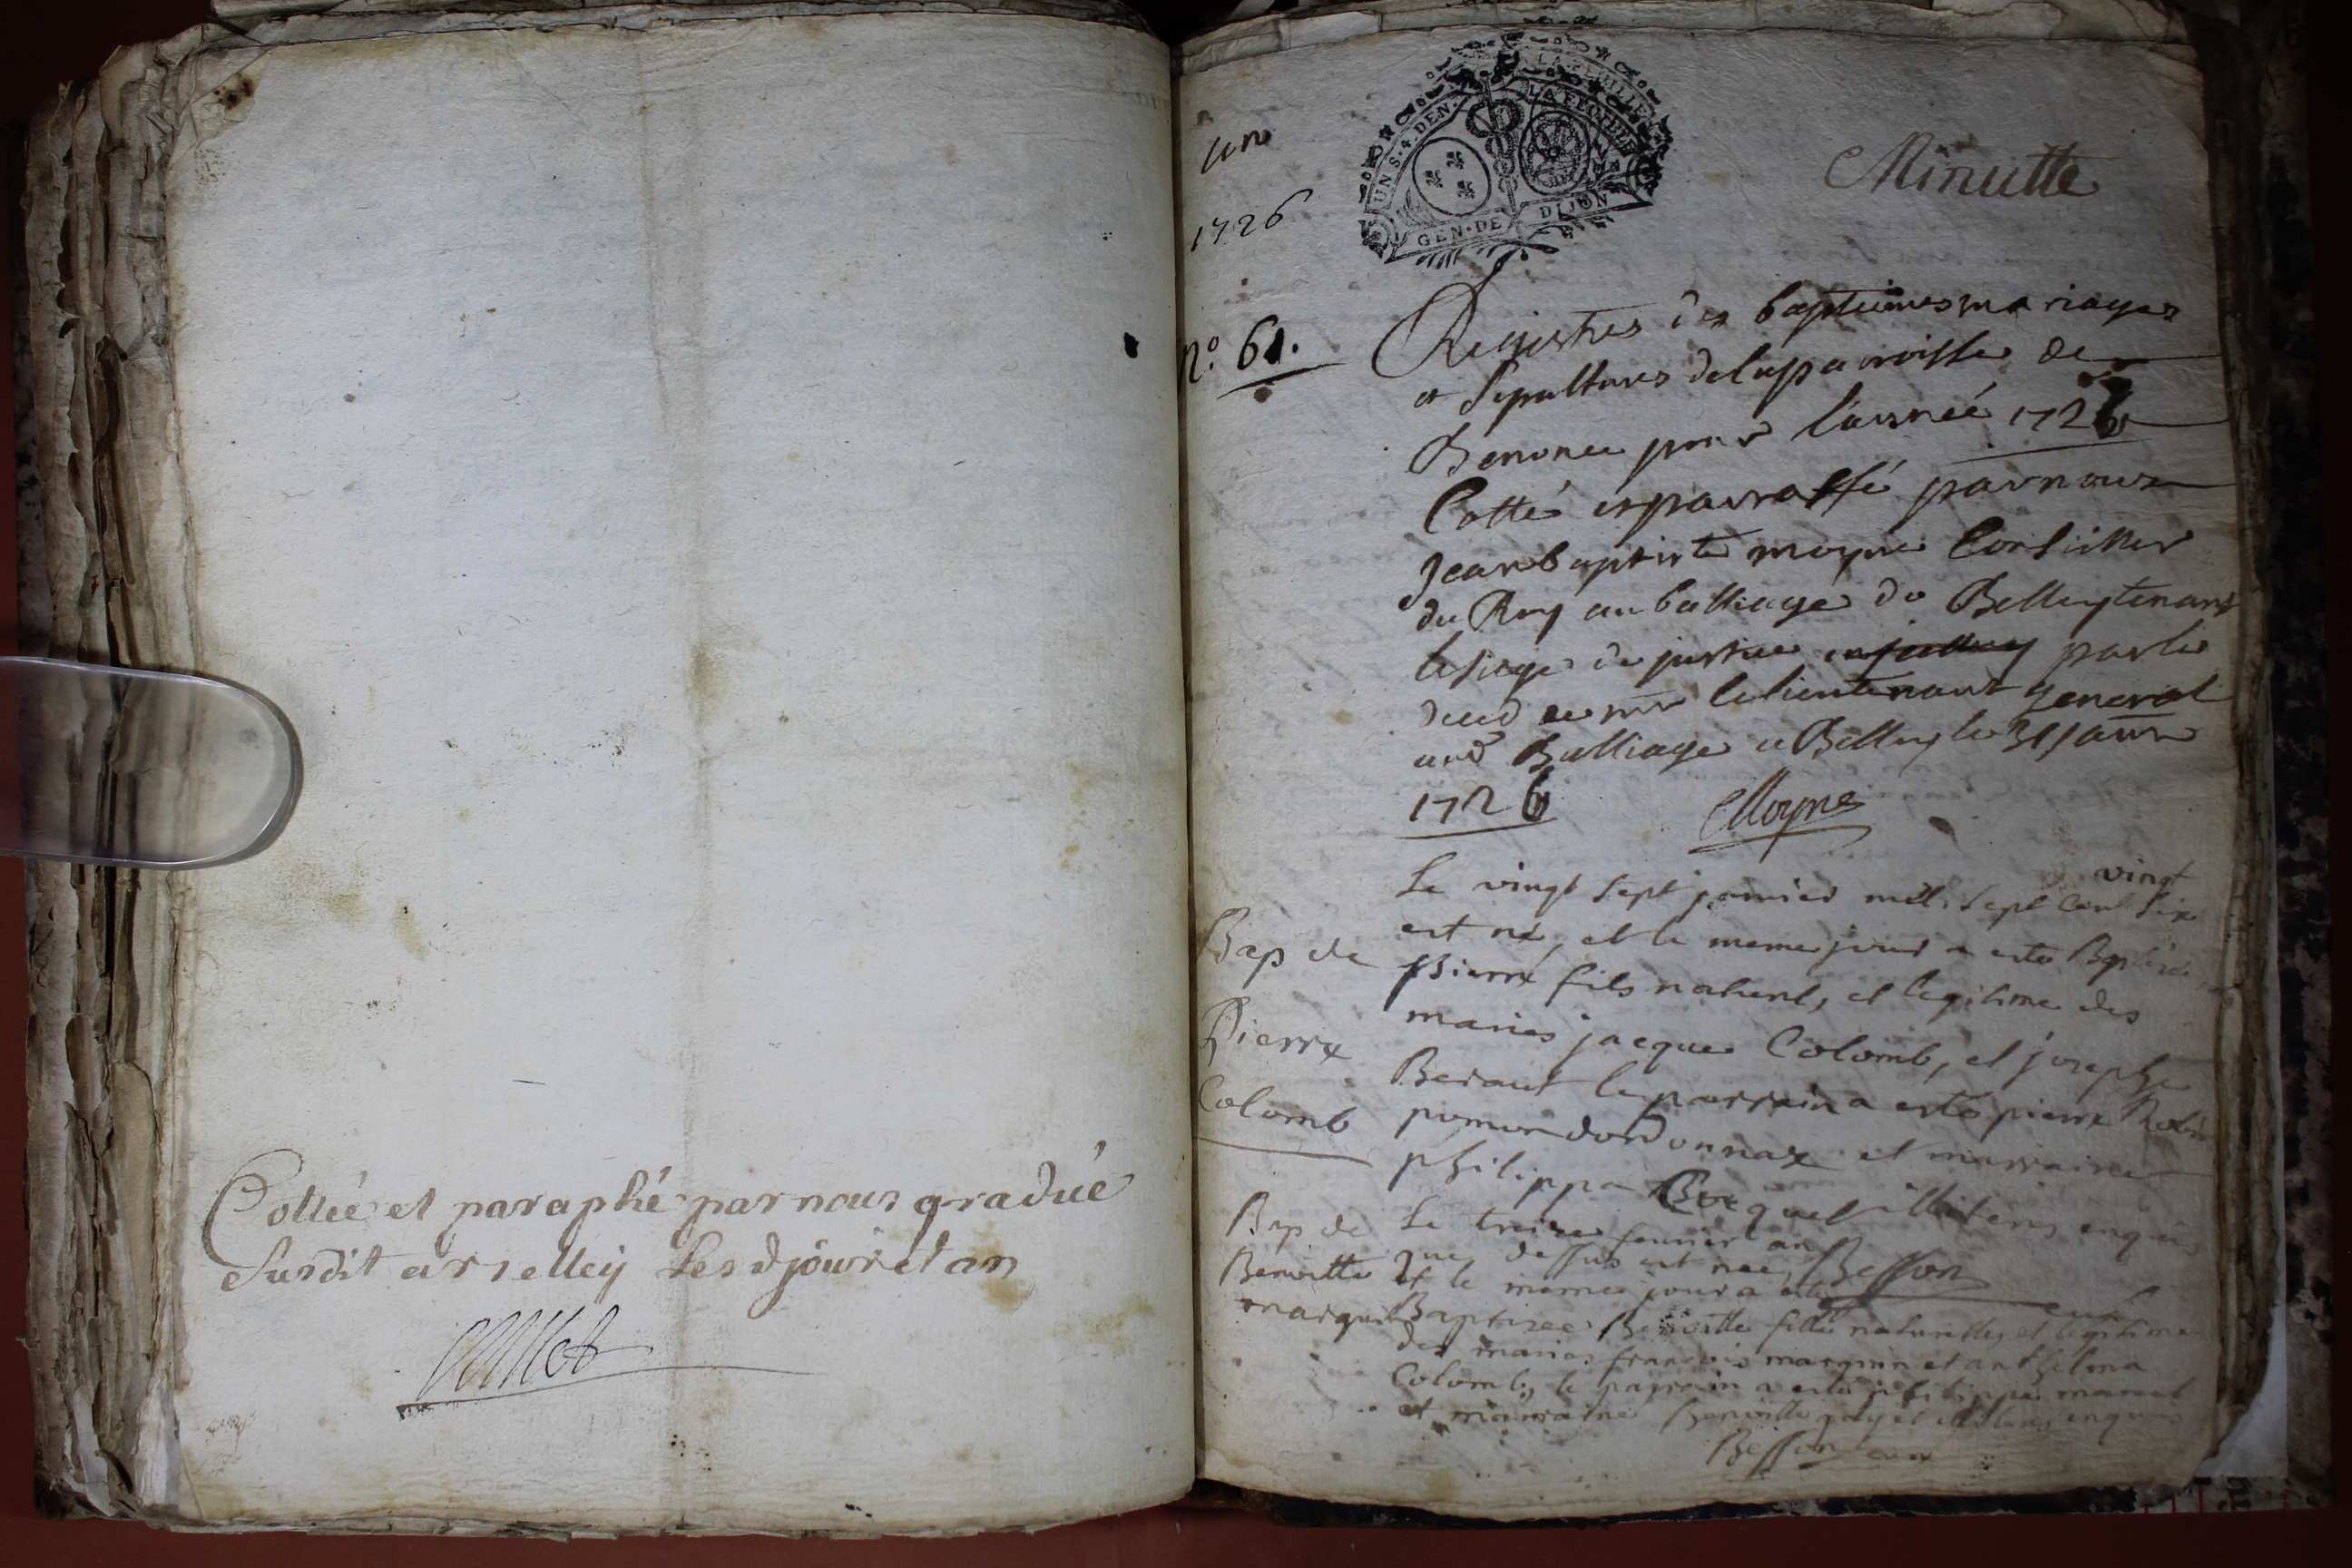 Cottée et paraphé par nous gradué
Susdit a Les djour et an
un
1726
N.o 61.
UN S. 4 DEN. LA FEUILLE
GEN. DE DIJON
Minutte
Registres des baptiemes mariages
et Sepultures de la parroisse de
Benonce pour l'année 1726
Cotté et parraffé par nous
Jean baptiste moyne Conseiller
du Roy au balliage de Belley tenant
le siege de justice par le
deced de mr le lieutenant general
aud Balliage a Belley le 31 janv
1726
Moyne
Bap de
Pierre
Colomb
vingt
Le vingt sept janvier mill sept cent six
est né, et le meme jour a esté Baptisé
Pierre fils naturel, et legitime des
maries jacque Colomb, et josephe
Beraut le parrain a esté pierre Robin
d'ordonnax et marraine
philippa
Bap de
Benoitte
marguin
Le treize fevrier an
que dessus est née, Besson
et le meme jour a esté curé
Baptizee Benoitte fille naturelle, et legitime
des maries françois marguin et anthelma
Colomb, le parrain a esté philippe
et marraine Benoitte
Besson curé